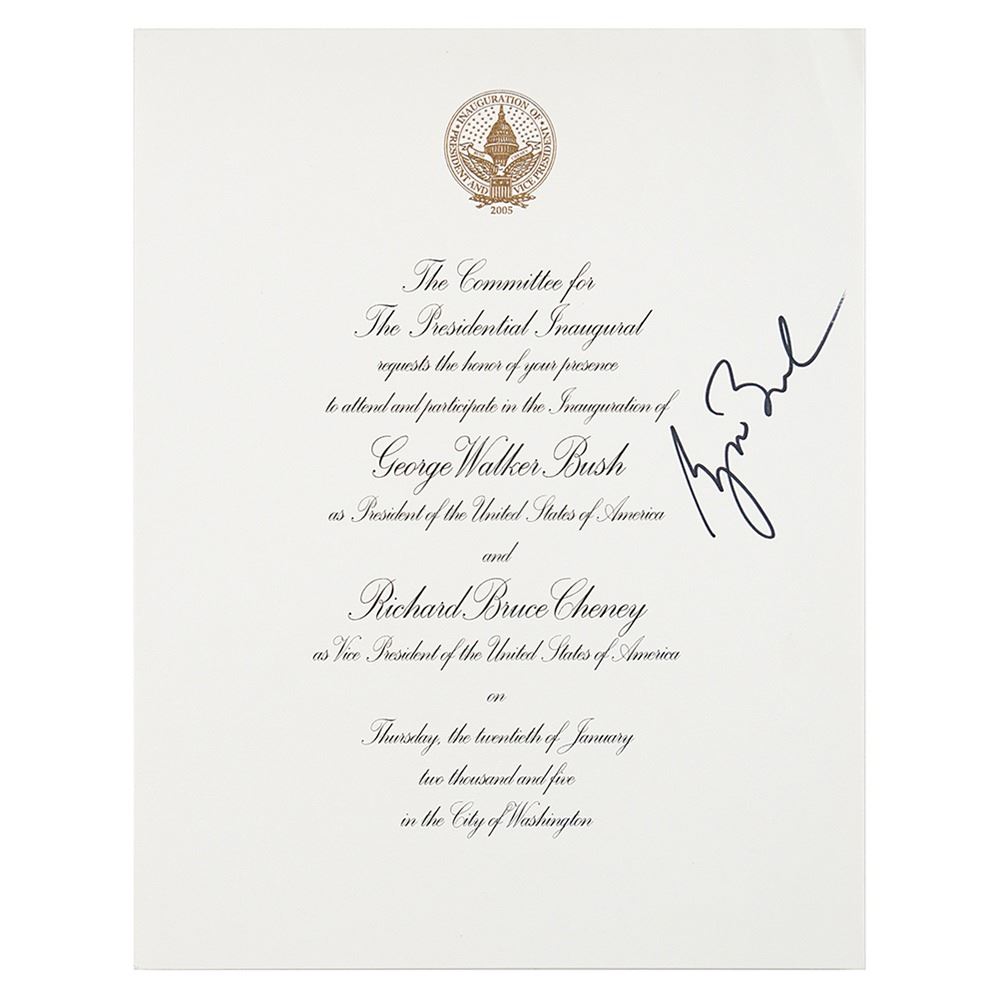 INAUGURATION OF
PRESIDENT AND VICE PRESIDENT
2005
The Committee for
The Presidential Inaugural
requests the honor of your presence
to attend and participate in the Inauguration of
George Walker Bush
as President of the United States of America
and
Richard Bruce Cheney
as Vice President of the United States of America
on
Thursday, the twentieth of January
two thousand and five
in the City of Washington